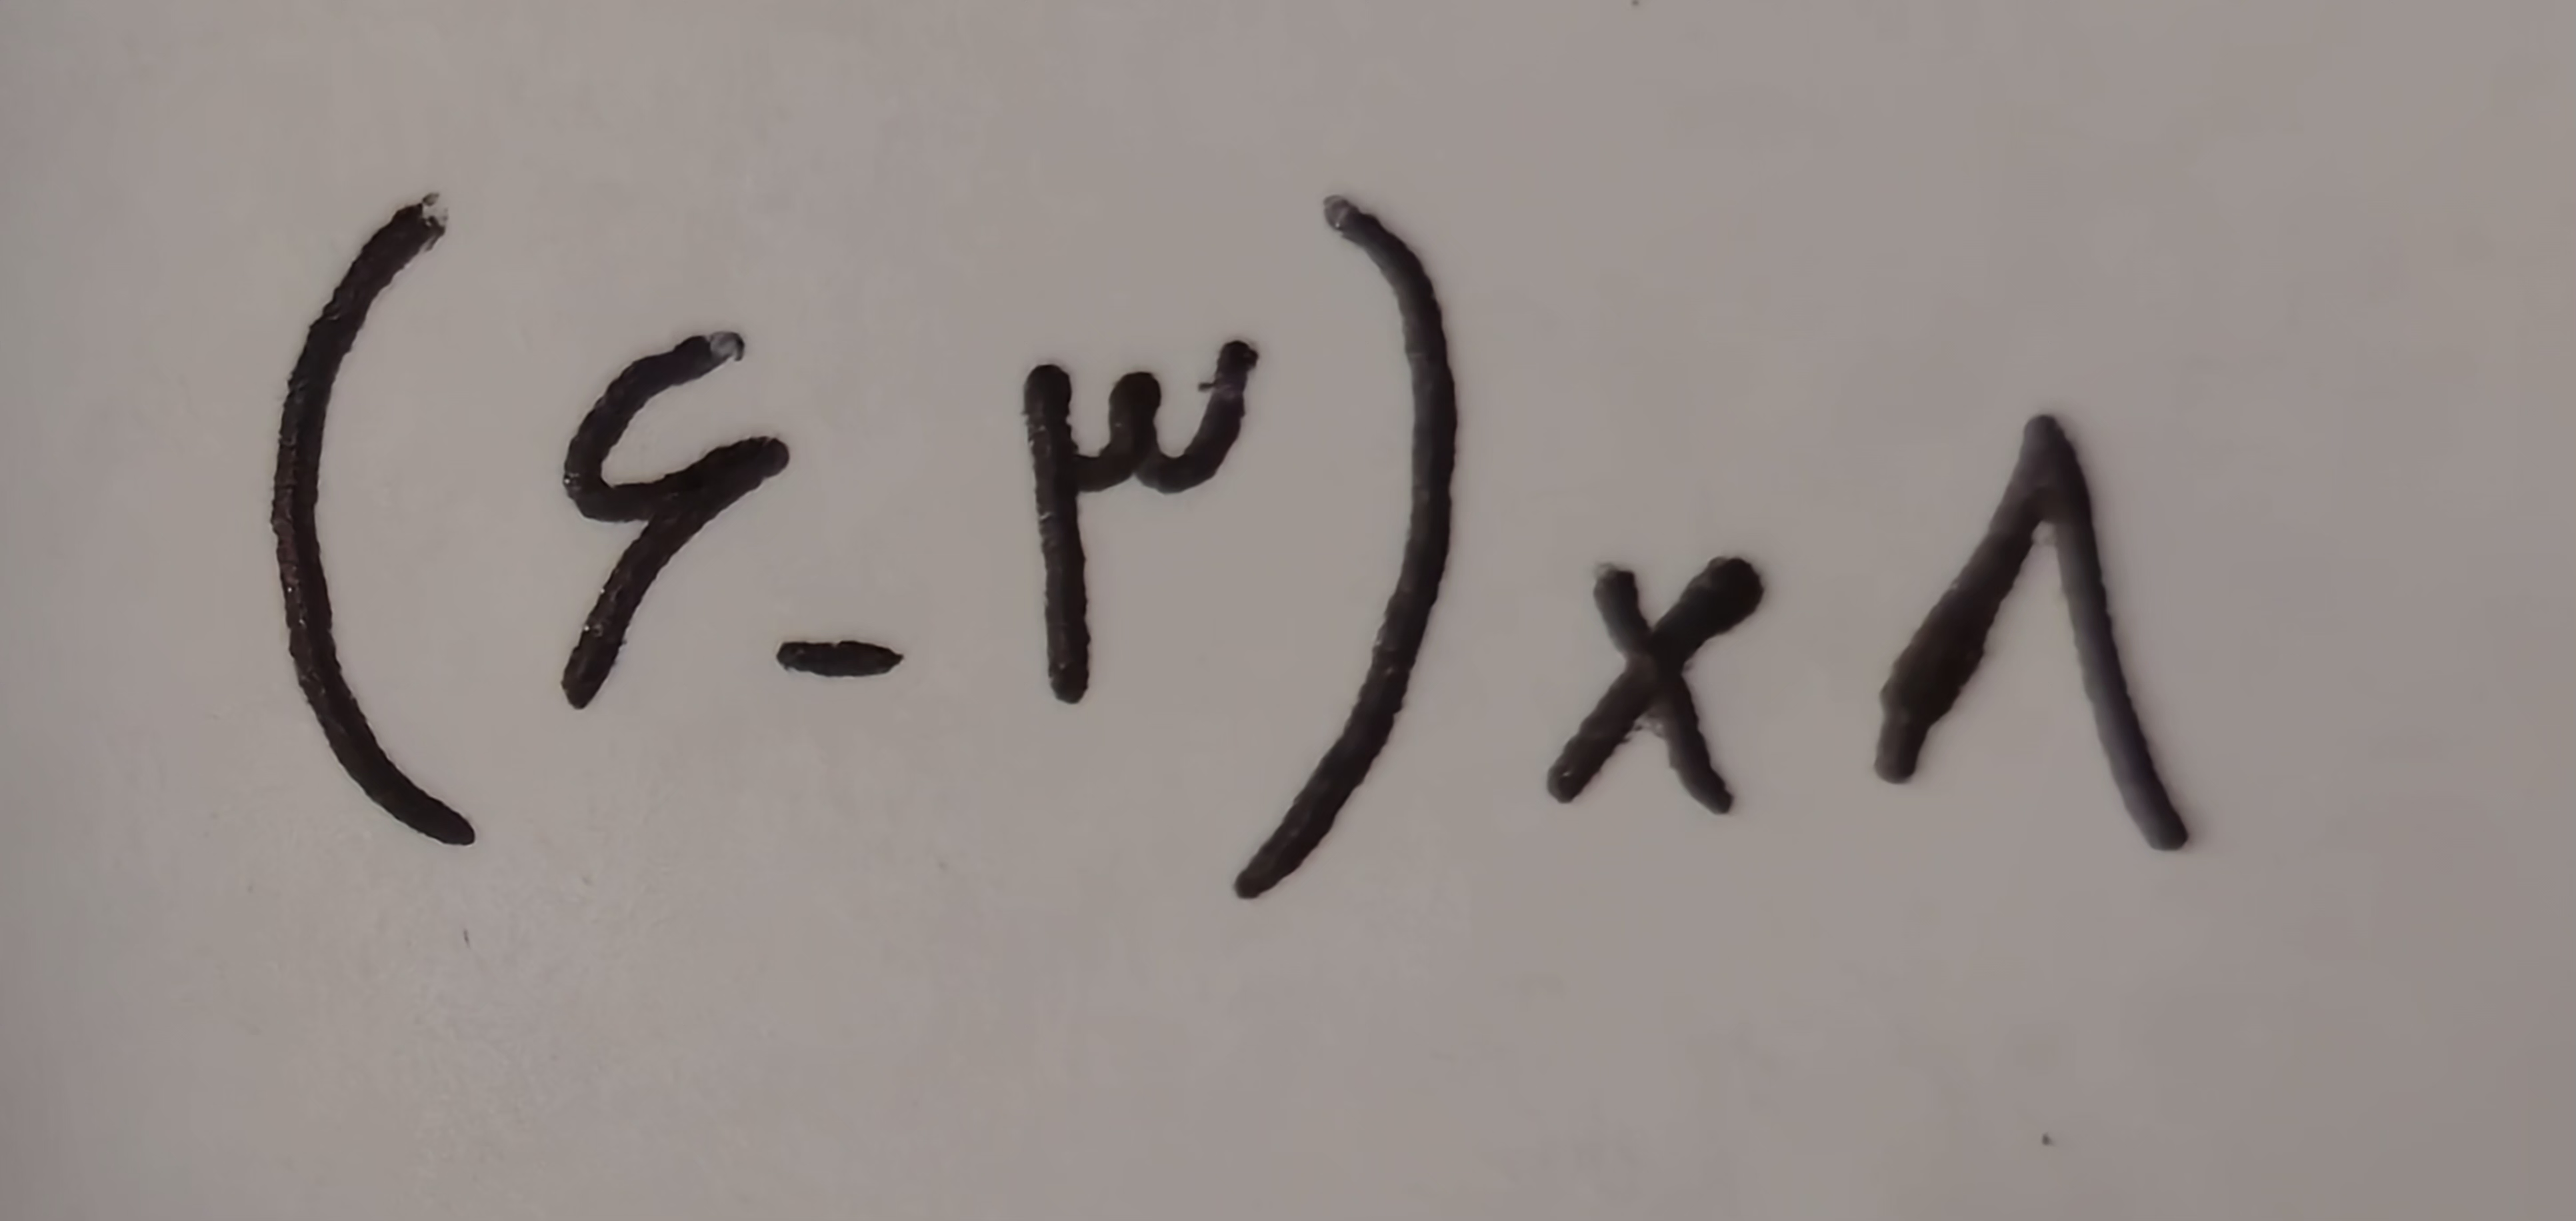 (۶-۳)×۸